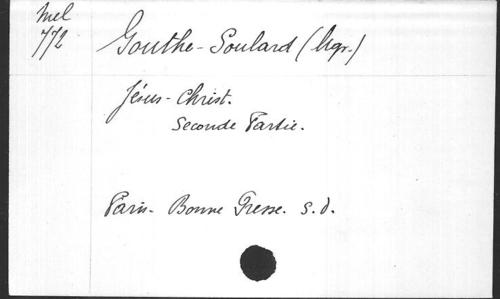 Mel
772
Gouthe-Soulard (Mgr.)
Jésus-Christ.
Seconde Partie.
Paris - Bonne Presse. s.d.